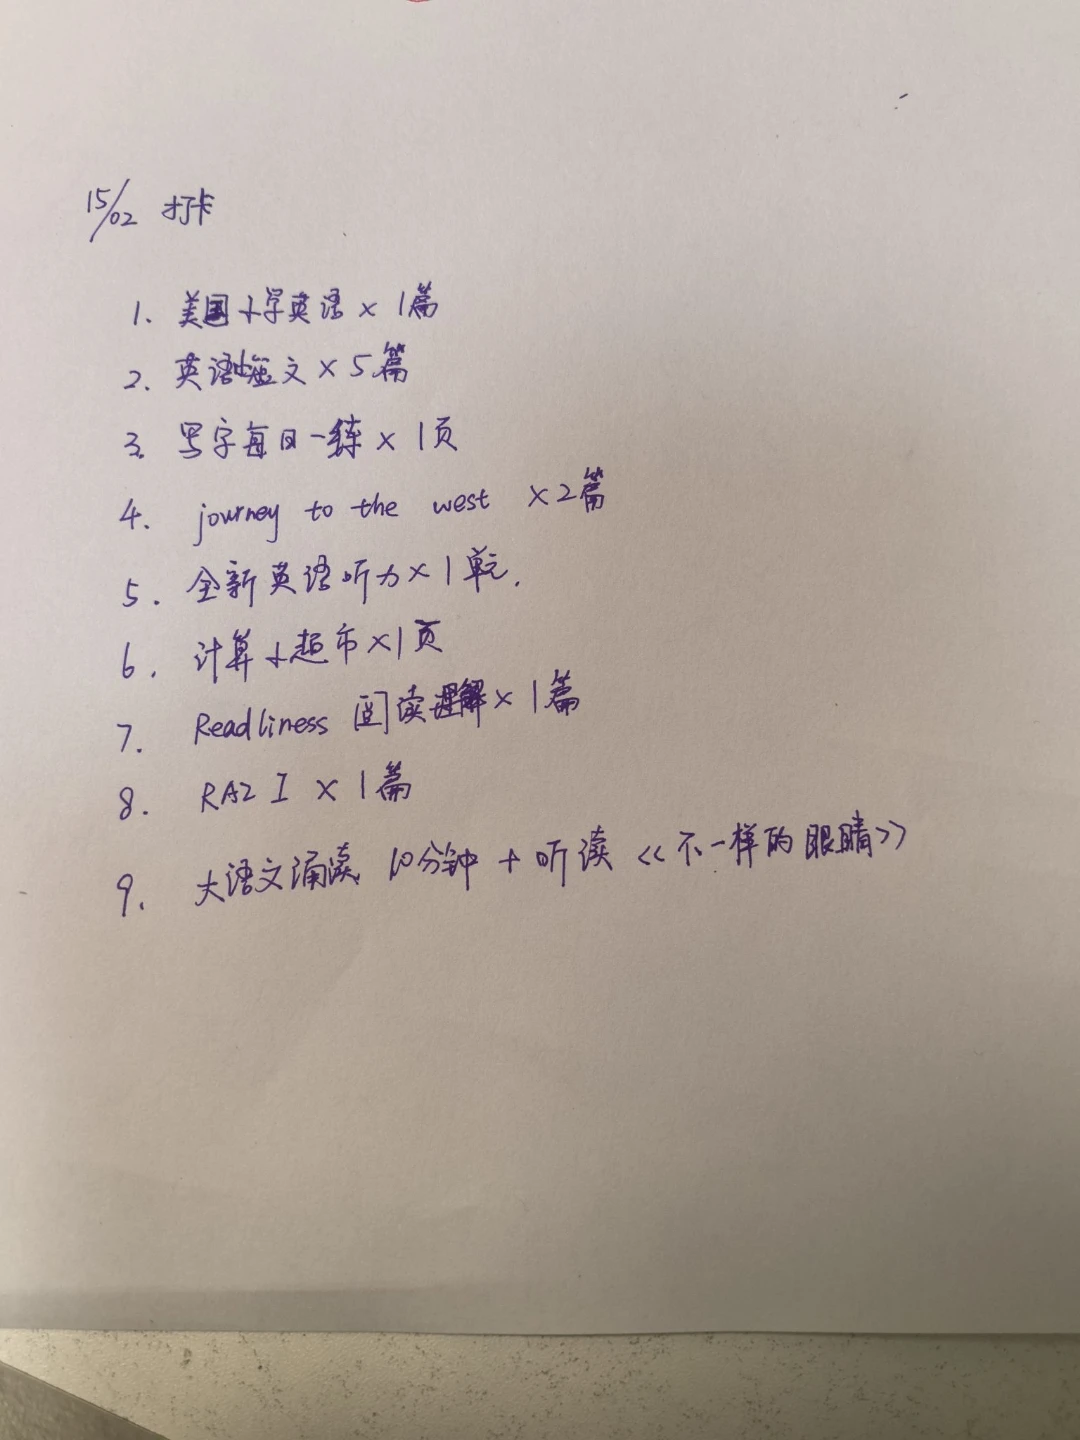 15/02 打卡
1. 美国小学英语 × 1篇
2. 英语短文 × 5篇
3. 写字每日一练 × 1页
4. journey to the west × 2篇
5. 全新英语听力 × 1单元.
6. 计算小超市 × 1页
7. Readliness 阅读理解 × 1篇
8. RAZ I × 1篇
9. 大语文诵读 10分钟 + 听读 <<不一样的眼睛>>